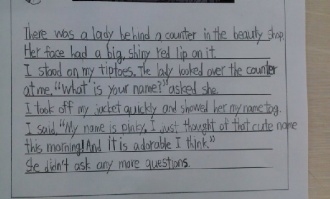 There was a lady behind a counter in the beauty shop.
Her face had a big, shiny red lip on it.
I stood on my tiptoes. The lady looked over the counter
at me, "What is your name?" asked she.
I took off my jacket quickly and showed her my name tag.
I said, "My name is pinky, I just thought of that cute name
this morning! And it is adorable I think."
She didn't ask any more questions.